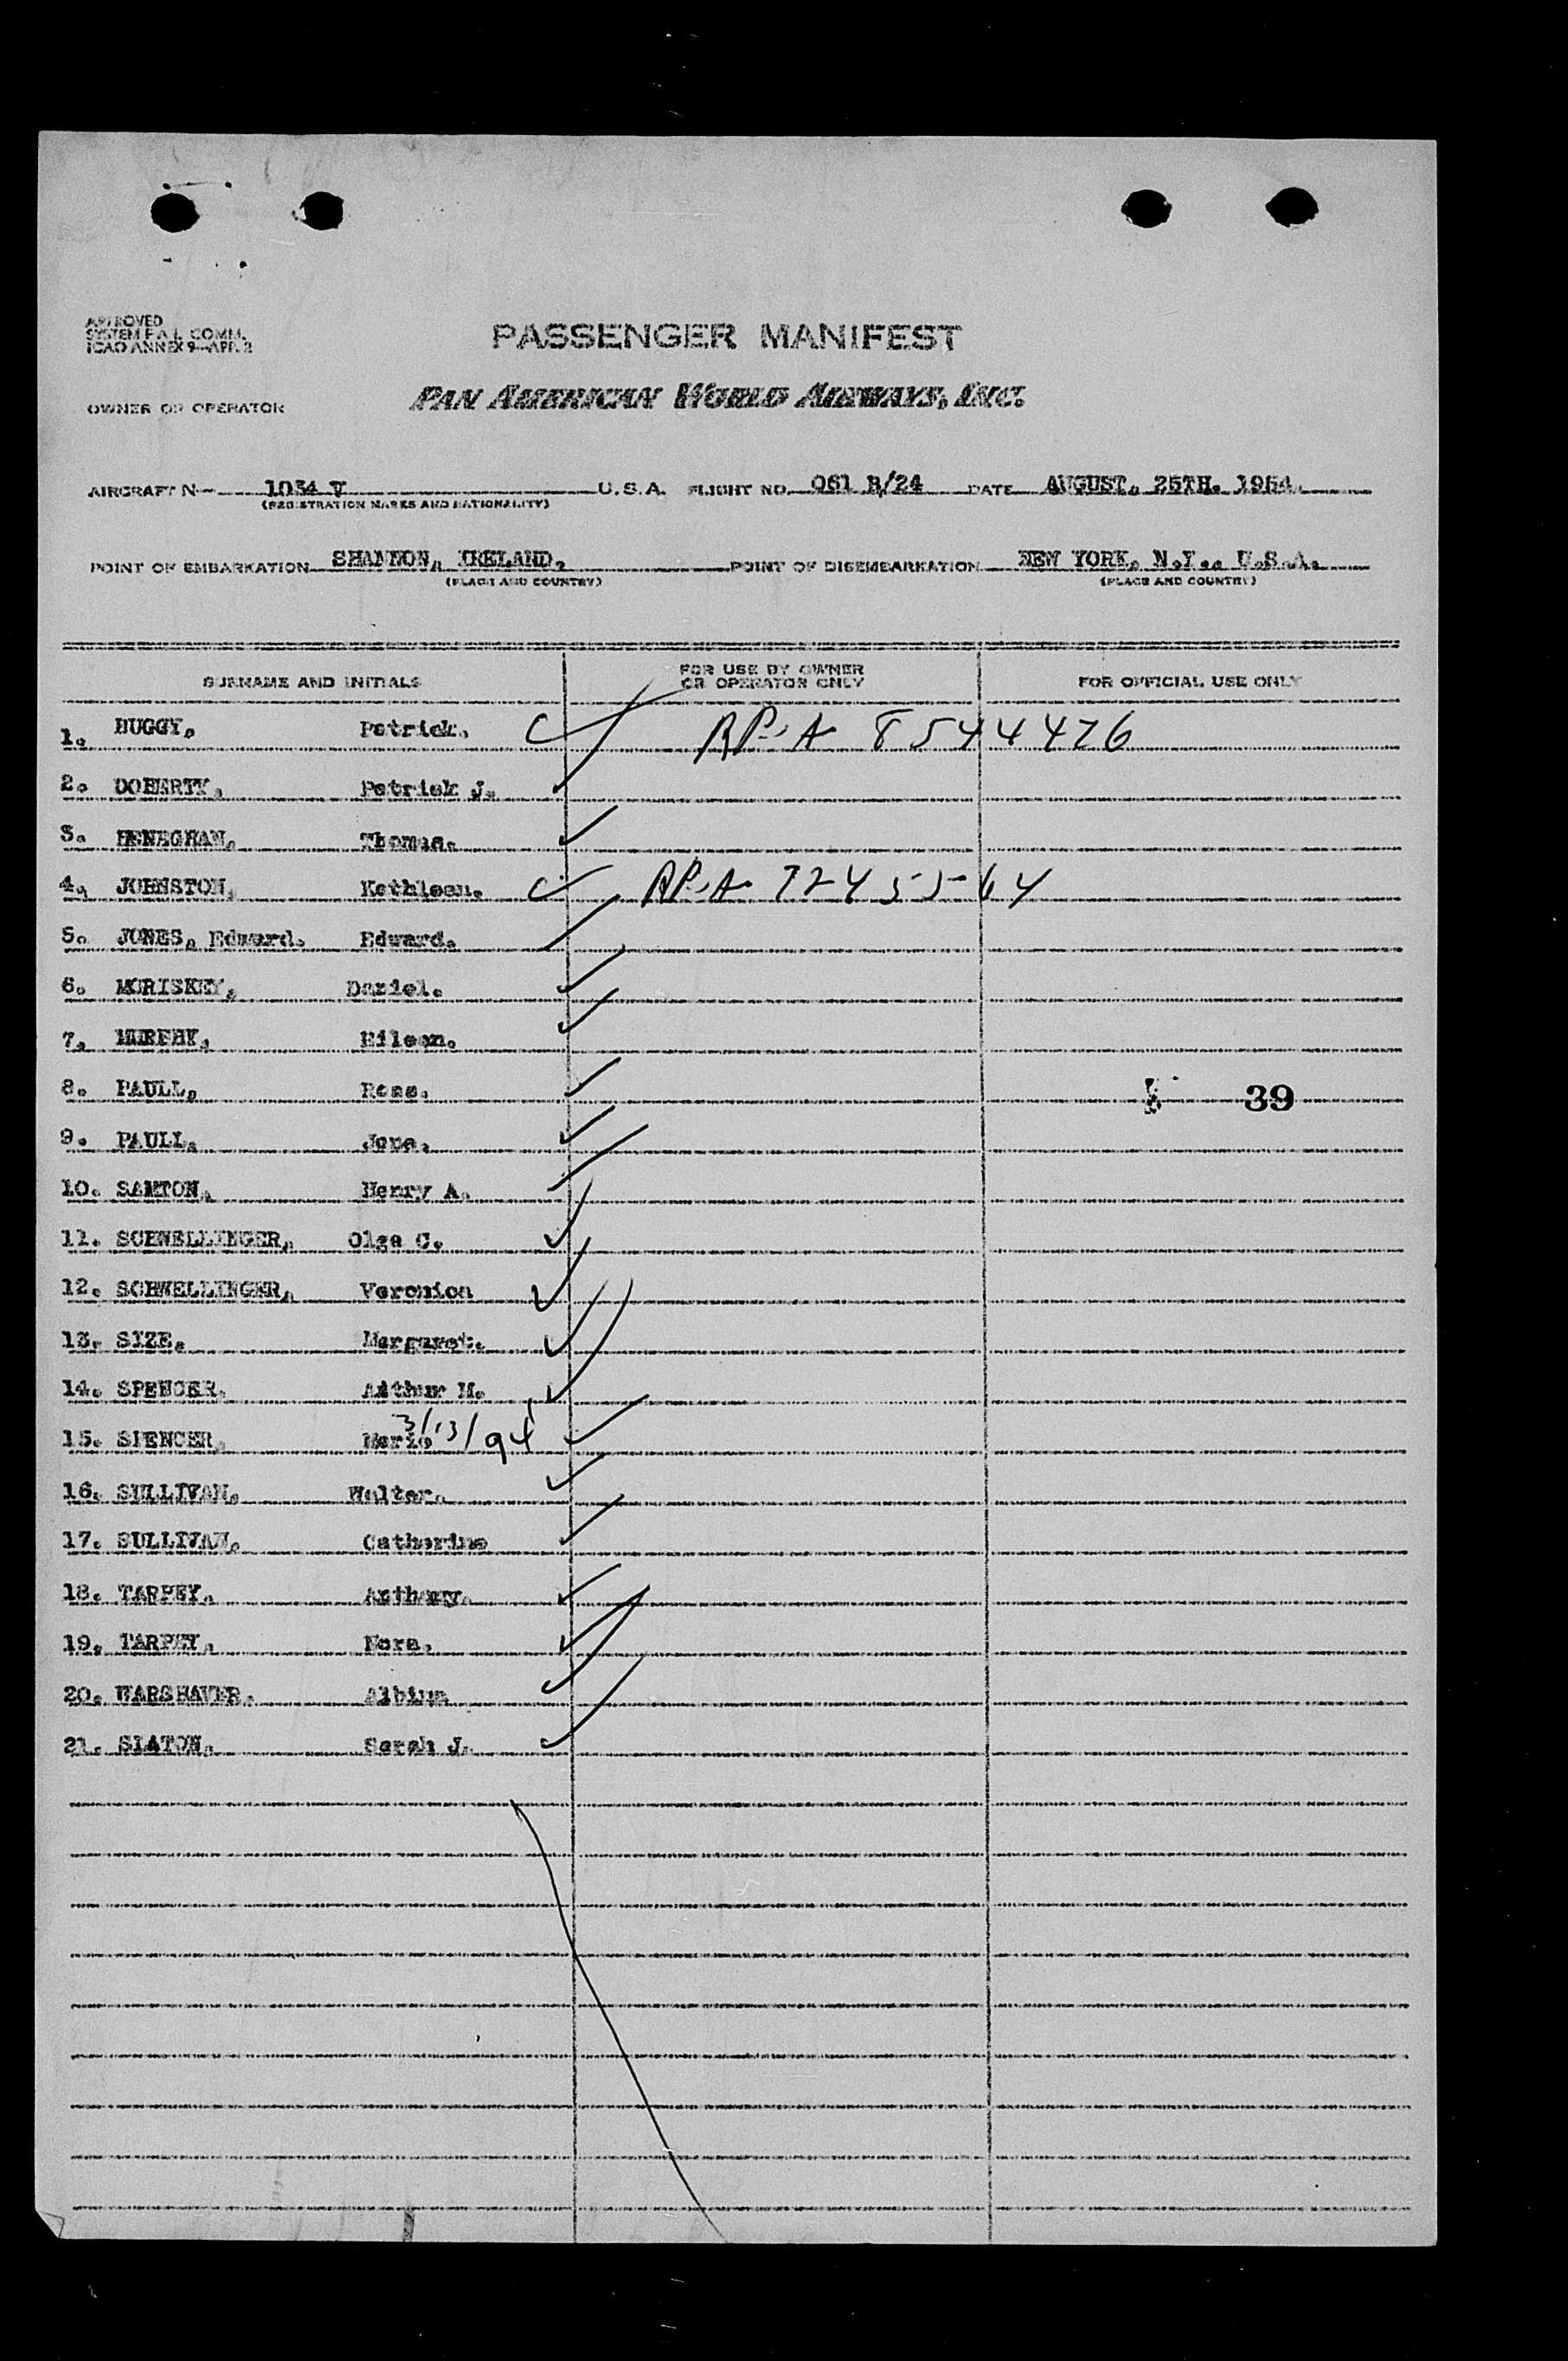 APPROVED
SYSTEM F.A.L. COMM.
ICAO ANNEX 9—APP. 2
PASSENGER MANIFEST
OWNER OR OPERATOR PAN AMERICAN WORLD AIRWAYS, INC.
AIRCRAFT N— 1034 V U.S.A. FLIGHT NO. 061 B/24 DATE AUGUST, 25TH. 1954.
(REGISTRATION MARKS AND NATIONALITY)
POINT OF EMBARKATION SHANNON, IRELAND, POINT OF DISEMBARKATION NEW YORK, N.Y., U.S.A.
(PLACE AND COUNTRY) (PLACE AND COUNTRY)
SURNAME AND INITIALS FOR USE BY OWNER OR OPERATOR ONLY FOR OFFICIAL USE ONLY
1. BUGGY, Patrick.
2. DOHERTY, Patrick J.
3. HENEGHAN, Thomas.
4. JOHNSTON, Kathleen.
5. JONES, Edward. Edward.
6. MORISKEY, Daniel.
7. MURPHY, Eileen.
8. PAULL, Ross. 39
9. PAULL, Jane.
10. SAMTON, Henry A.
11. SCHWELLINGER, Olga C.
12. SCHWELLINGER, Veronica
13. SIZE, Margaret.
14. SPENCER, Arthur M.
15. SPENCER, Marie 3/13/94
16. SULLIVAN, Walter.
17. SULLIVAN, Catherine
18. TARPEY, Anthony.
19. TARPEY, Nora.
20. WARSHAVER, Albina
21. SLATON, Sarah J.